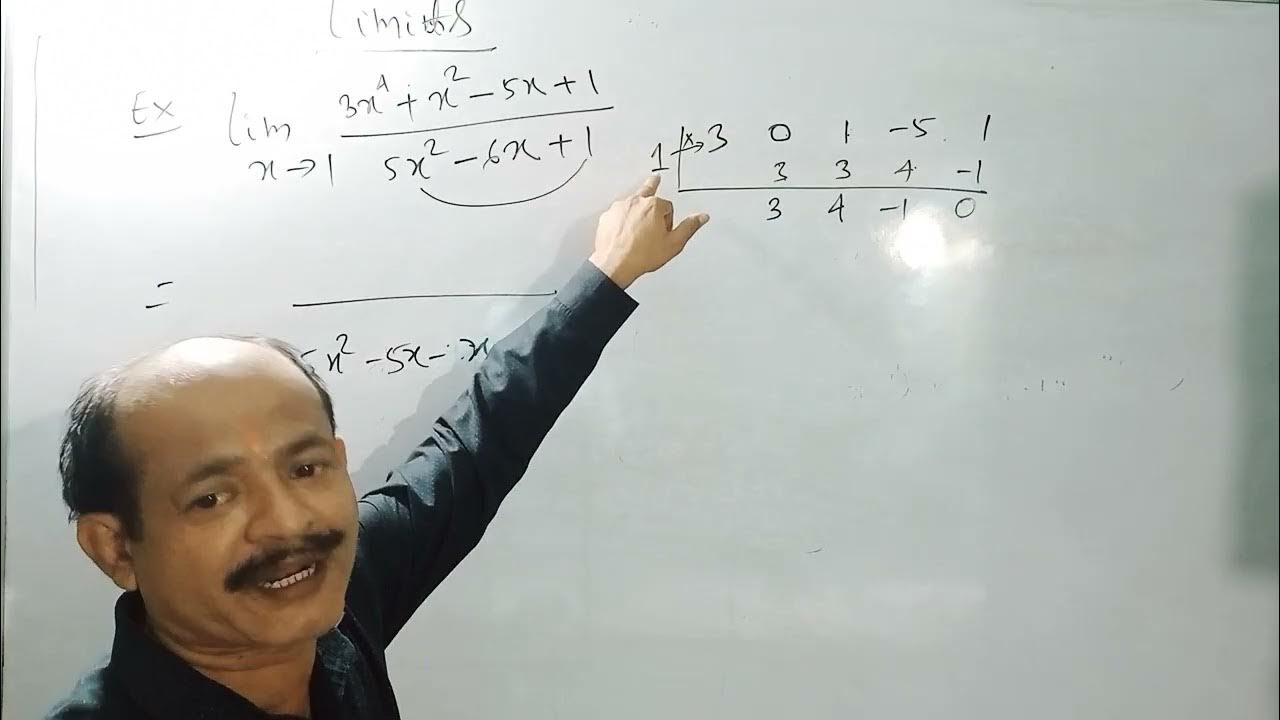 Limits
Ex lim x→1 (3x⁴ + x² - 5x + 1) / (5x² - 6x + 1)
1 | 3 0 1 -5 1
3 3 4 -1
3 4 -1 0
=
5x² - 5x - x